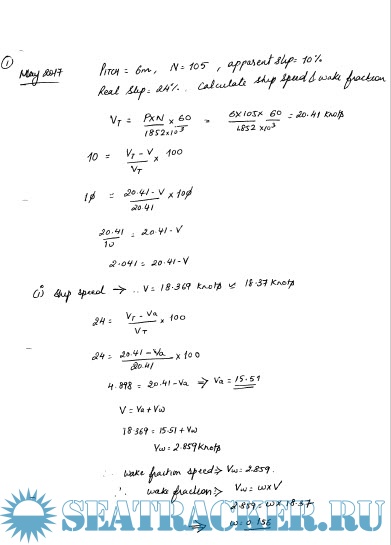 ① May 2017 Pitch = 6m, N = 105, apparent slip = 10%
Real slip = 24%. Calculate ship speed & wake fraction
V_T = PXN/1852x10³ x 60 = 6X105x/1852 x10³ 60 = 20.41 Knots
10 = V_T - V/V_T x 100
10 = 20.41 - V/20.41 x 100
20.41/10 = 20.41 - V
2.041 = 20.41 - V
(i) Ship speed → ∴ V = 18.369 Knots ≃ 18.37 Knots
24 = V_T - Va/V_T x 100
24 = 20.41 - Va/20.41 x 100
4.898 = 20.41 - Va ⇒ Va = 15.51
V = Va + Vw
18.369 = 15.51 + Vw
Vw = 2.859 Knots
∴ wake fraction speed ⇒ Vw = 2.859.
∴ wake fraction ⇒ Vw = w x V
2.859 = w x 18.37
⇒ w = 0.156
SEATRACKER.RU